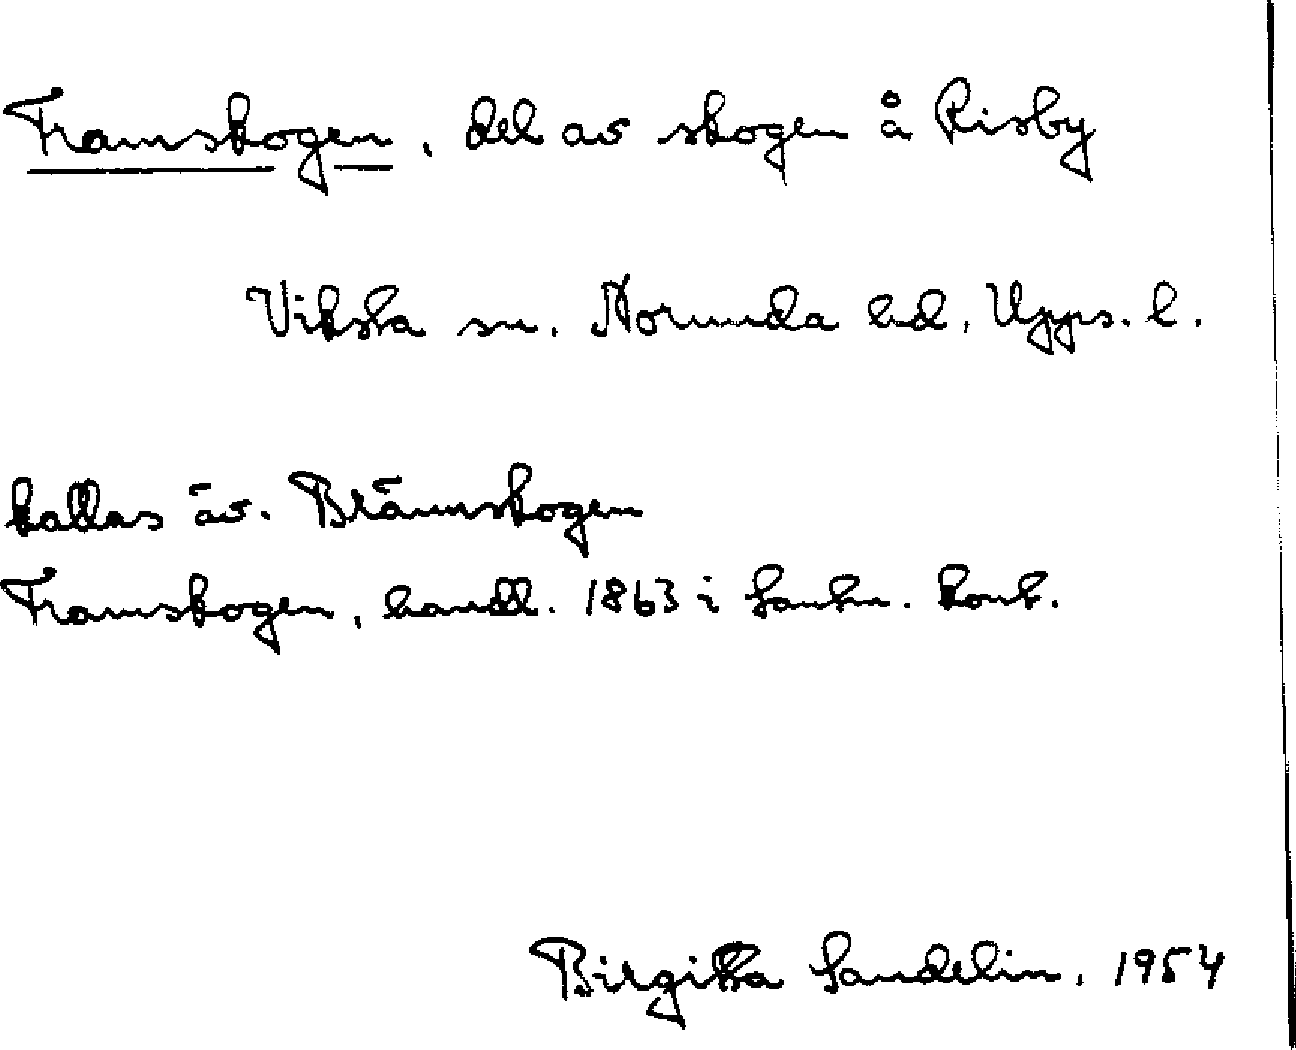 Framskogen, del av skogen å Risby
Viksta sn. Norunda hd, Upps. l.
kallas äv. Brännskogen
Framskogen, handl. 1863 i Lantm. kont.
Birgitta Sandelin, 1954